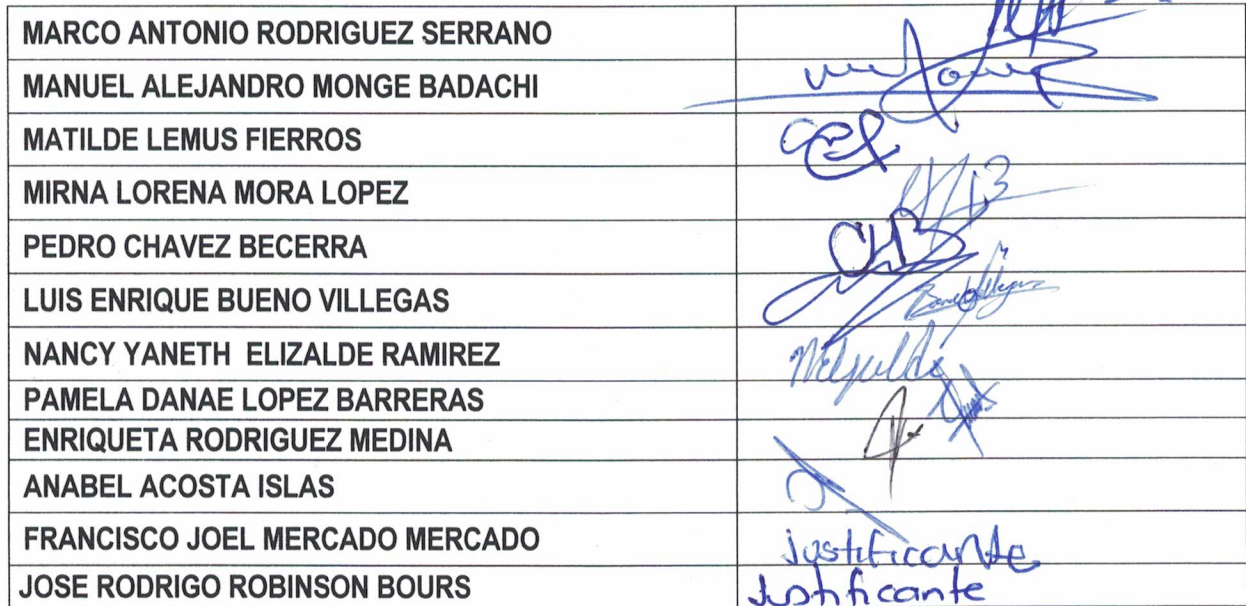 MARCO ANTONIO RODRIGUEZ SERRANO
MANUEL ALEJANDRO MONGE BADACHI
MATILDE LEMUS FIERROS
MIRNA LORENA MORA LOPEZ
PEDRO CHAVEZ BECERRA
LUIS ENRIQUE BUENO VILLEGAS
NANCY YANETH ELIZALDE RAMIREZ
PAMELA DANAE LOPEZ BARRERAS
ENRIQUETA RODRIGUEZ MEDINA
ANABEL ACOSTA ISLAS
FRANCISCO JOEL MERCADO MERCADO justificante
JOSE RODRIGO ROBINSON BOURS Justificante